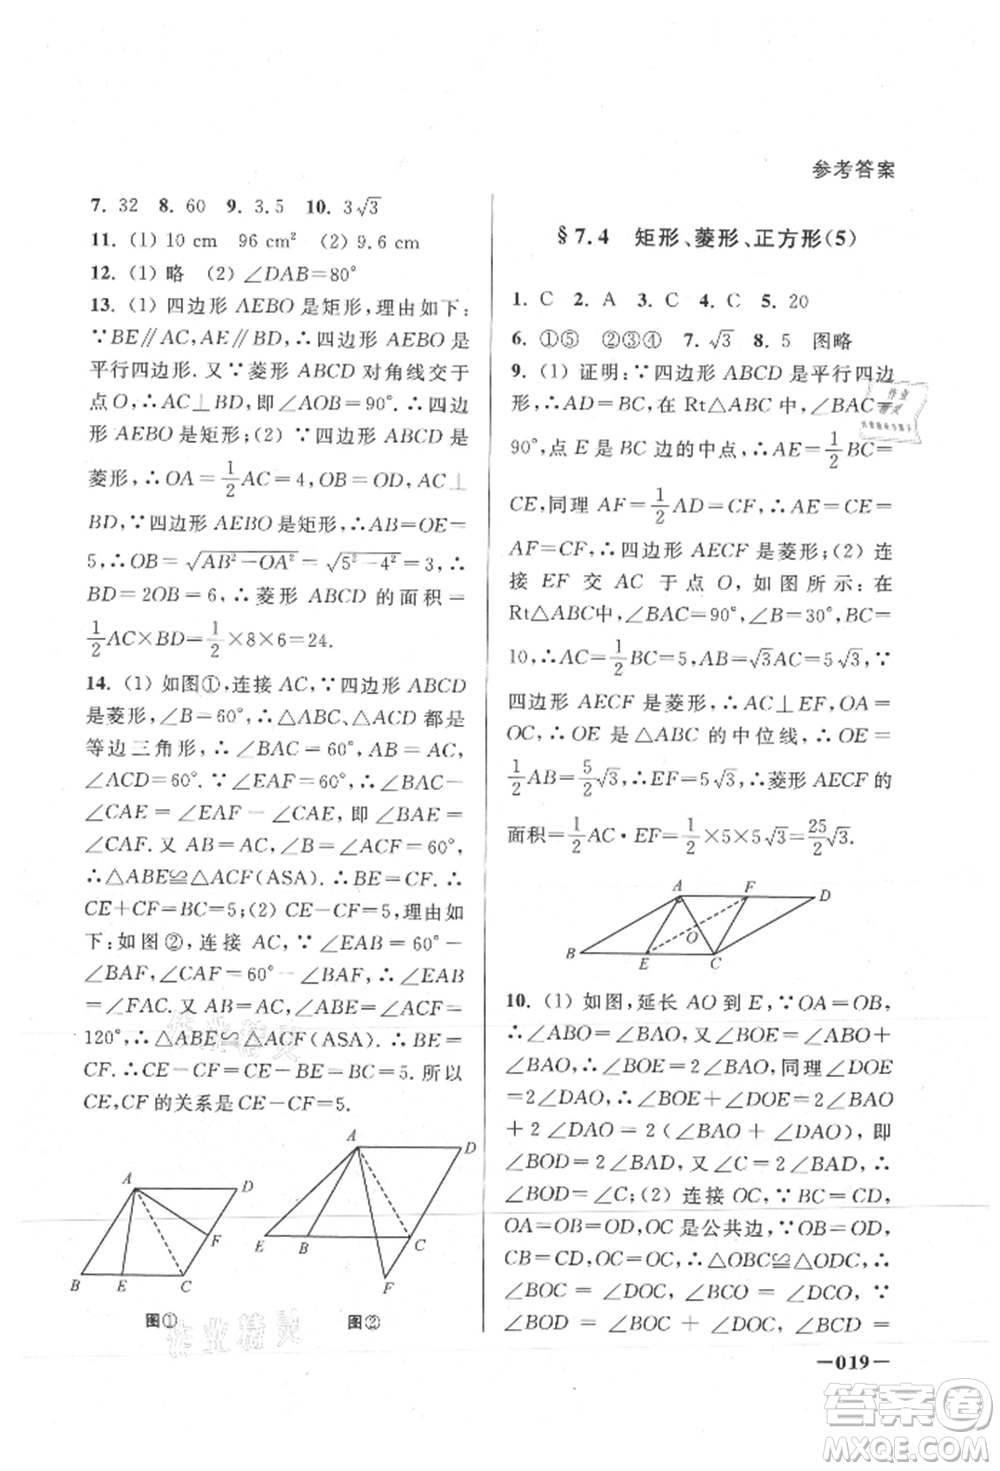 参考答案
7. 32　8. 60　9. 3.5　10. 3√3
11. (1) 10 cm　96 cm²　(2) 9.6 cm
12. (1) 略　(2) ∠DAB=80°
13. (1) 四边形 AEBO 是矩形,理由如下:
∵BE∥AC,AE∥BD,∴四边形 AEBO 是
平行四边形. 又∵菱形 ABCD 对角线交于
点 O,∴AC⊥BD,即∠AOB=90°. ∴四边
形 AEBO 是矩形;(2) ∵四边形 ABCD 是菱
形,∴OA=1/2AC=4,OB=OD,AC⊥
BD,∵四边形 AEBO 是矩形,∴AB=OE=
5,∴OB=√(AB²-OA²)=√(5²-4²)=3,∴
BD=2OB=6,∴菱形 ABCD 的面积=
1/2AC×BD=1/2×8×6=24.
14. (1) 如图①,连接 AC,∵四边形 ABCD
是菱形,∠B=60°,∴△ABC、△ACD 都是
等边三角形,∴∠BAC=60°,AB=AC,
∠ACD=60°. ∵∠EAF=60°,∴∠BAC-
∠CAE=∠EAF-∠CAE,即∠BAE=
∠CAF. 又∵AB=AC,∠B=∠ACF=60°,
∴△ABE≌△ACF(ASA). ∴BE=CF. ∴
CE+CF=BC=5;(2) CE-CF=5,理由如
下:如图②,连接 AC,∵∠BAE=60°-
∠BAF,∠CAF=60°-∠BAF,∴∠BAE
=∠FAC. 又∵AB=AC,∠ABE=∠ACF=
120°,∴△ABE≌△ACF(ASA). ∴BE=
CF. ∴CE-CF=CE-BE=BC=5. 所以
CE,CF 的关系是 CE-CF=5.
A
D
F
B
E
C
图①
A
D
E
B
C
F
图②
§7.4　矩形、菱形、正方形(5)
1. C　2. A　3. C　4. C　5. 20
6. ①⑤　②③④　7. √3　8. 5　图略
9. (1) 证明:∵四边形 ABCD 是平行四边
形,∴AD=BC,在 Rt△ABC 中,∠BAC=
90°,点 E 是 BC 边的中点,∴AE=1/2BC=
CE,同理 AF=1/2AD=CF,∴AE=CE=
AF=CF,∴四边形 AECF 是菱形;(2) 连
接 EF 交 AC 于点 O,如图所示:在
Rt△ABC中,∠BAC=90°,∠B=30°,BC=
10,∴AC=1/2BC=5,AB=√3AC=5√3,∵
四边形 AECF 是菱形,∴AC⊥EF,OA=
OC,∴OE 是△ABC 的中位线,∴OE=
1/2AB=5/2√3,∴EF=5√3,∴菱形 AECF 的
面积=1/2AC·EF=1/2×5×5√3=25/2√3.
A
F
D
O
B
E
C
10. (1) 如图,延长 AO 到 E,∵OA=OB,
∴∠ABO=∠BAO,又∠BOE=∠ABO+
∠BAO,∴∠BOE=2∠BAO,同理∠DOE
=2∠DAO,∴∠BOE+∠DOE=2∠BAO
+2∠DAO=2(∠BAO+∠DAO),即
∠BOD=2∠BAD,又∠C=2∠BAD,∴
∠BOD=∠C;(2) 连接 OC,∵OA=OB,
OA=OD,∴OB=OD,OC 是公共边,∵OB=OD,
CB=CD,OC=OC,∴△OBC≌△ODC,∴
∠BOC=∠DOC,∠BCO=∠DCO,∵
∠BOD=∠BOC+∠DOC,∠BCD=
—019—
作业精灵
答案圈
MXQE.COM